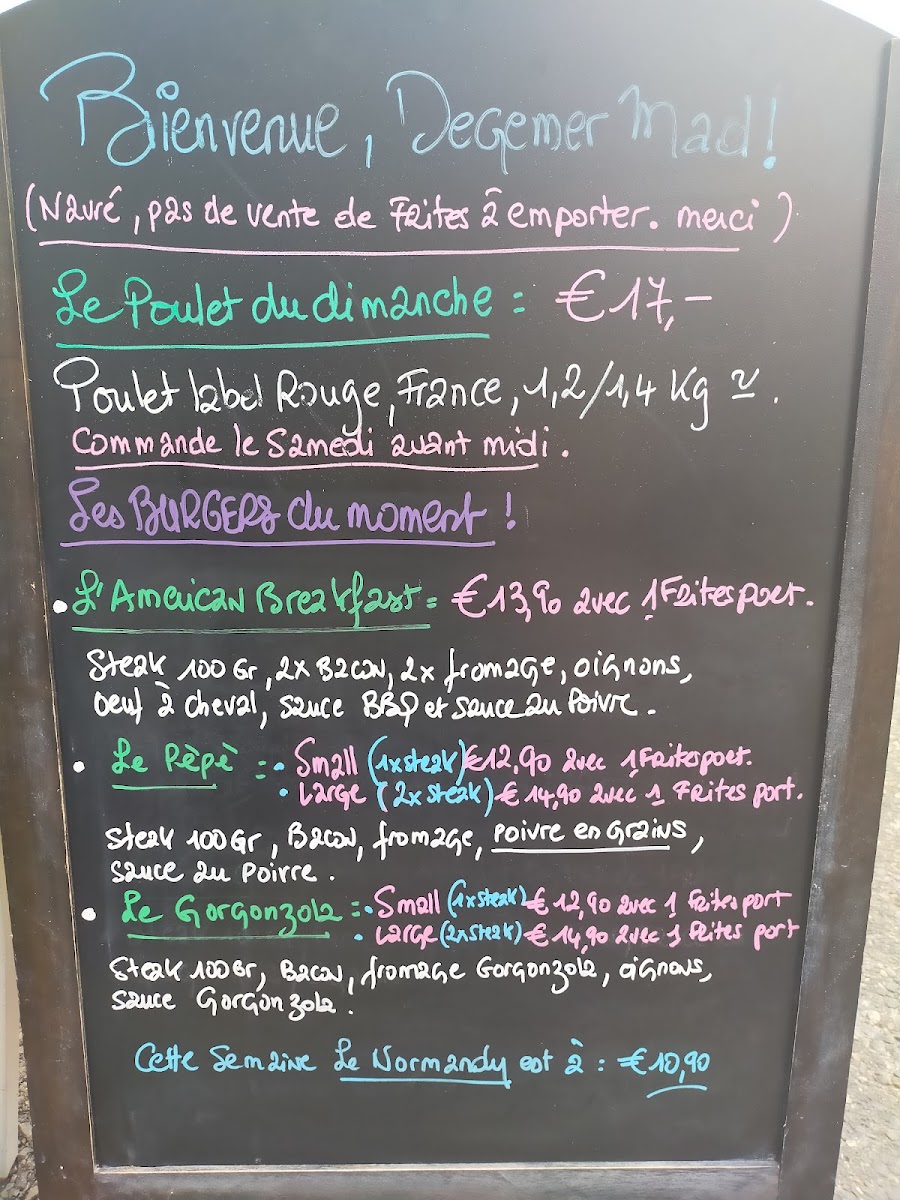 Bienvenue, Degemer Mad!
(Navré, pas de vente de Frites à emporter. merci)
Le Poulet du dimanche = €17,-
Poulet label Rouge, France, 1,2/1,4 Kg ≃.
Commande le Samedi avant midi.
Les BURGERS du moment !
• L'American Breakfast = €13,90 avec 1 Frites port.
Steak 100 Gr, 2x Bacon, 2x fromage, oignons,
oeuf à cheval, sauce BBQ et sauce au Poivre.
• Le Pèpè = • Small (1x steak) €12,90 avec 1 Frites port.
• Large (2x steak) € 14,90 avec 1 Frites port.
Steak 100 Gr, Bacon, fromage, poivre en grains,
sauce au Poivre.
• Le Gorgonzola = • Small (1x steak) € 12,90 avec 1 Frites port
• Large (2x steak) € 14,90 avec 1 Frites port
Steak 100 Gr, Bacon, fromage Gorgonzola, oignons,
sauce Gorgonzola.
Cette Semaine Le Normandy est à : €10,90